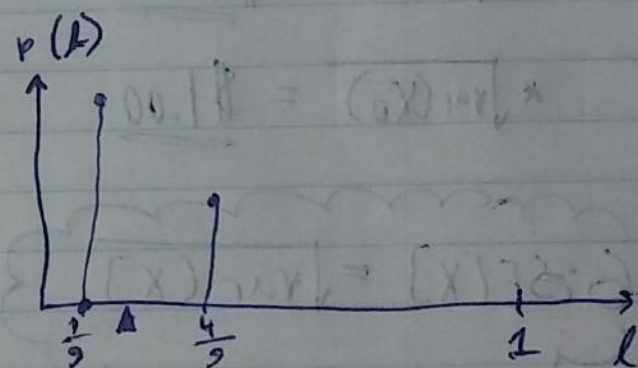 p(l)
1/9
4/9
1
l